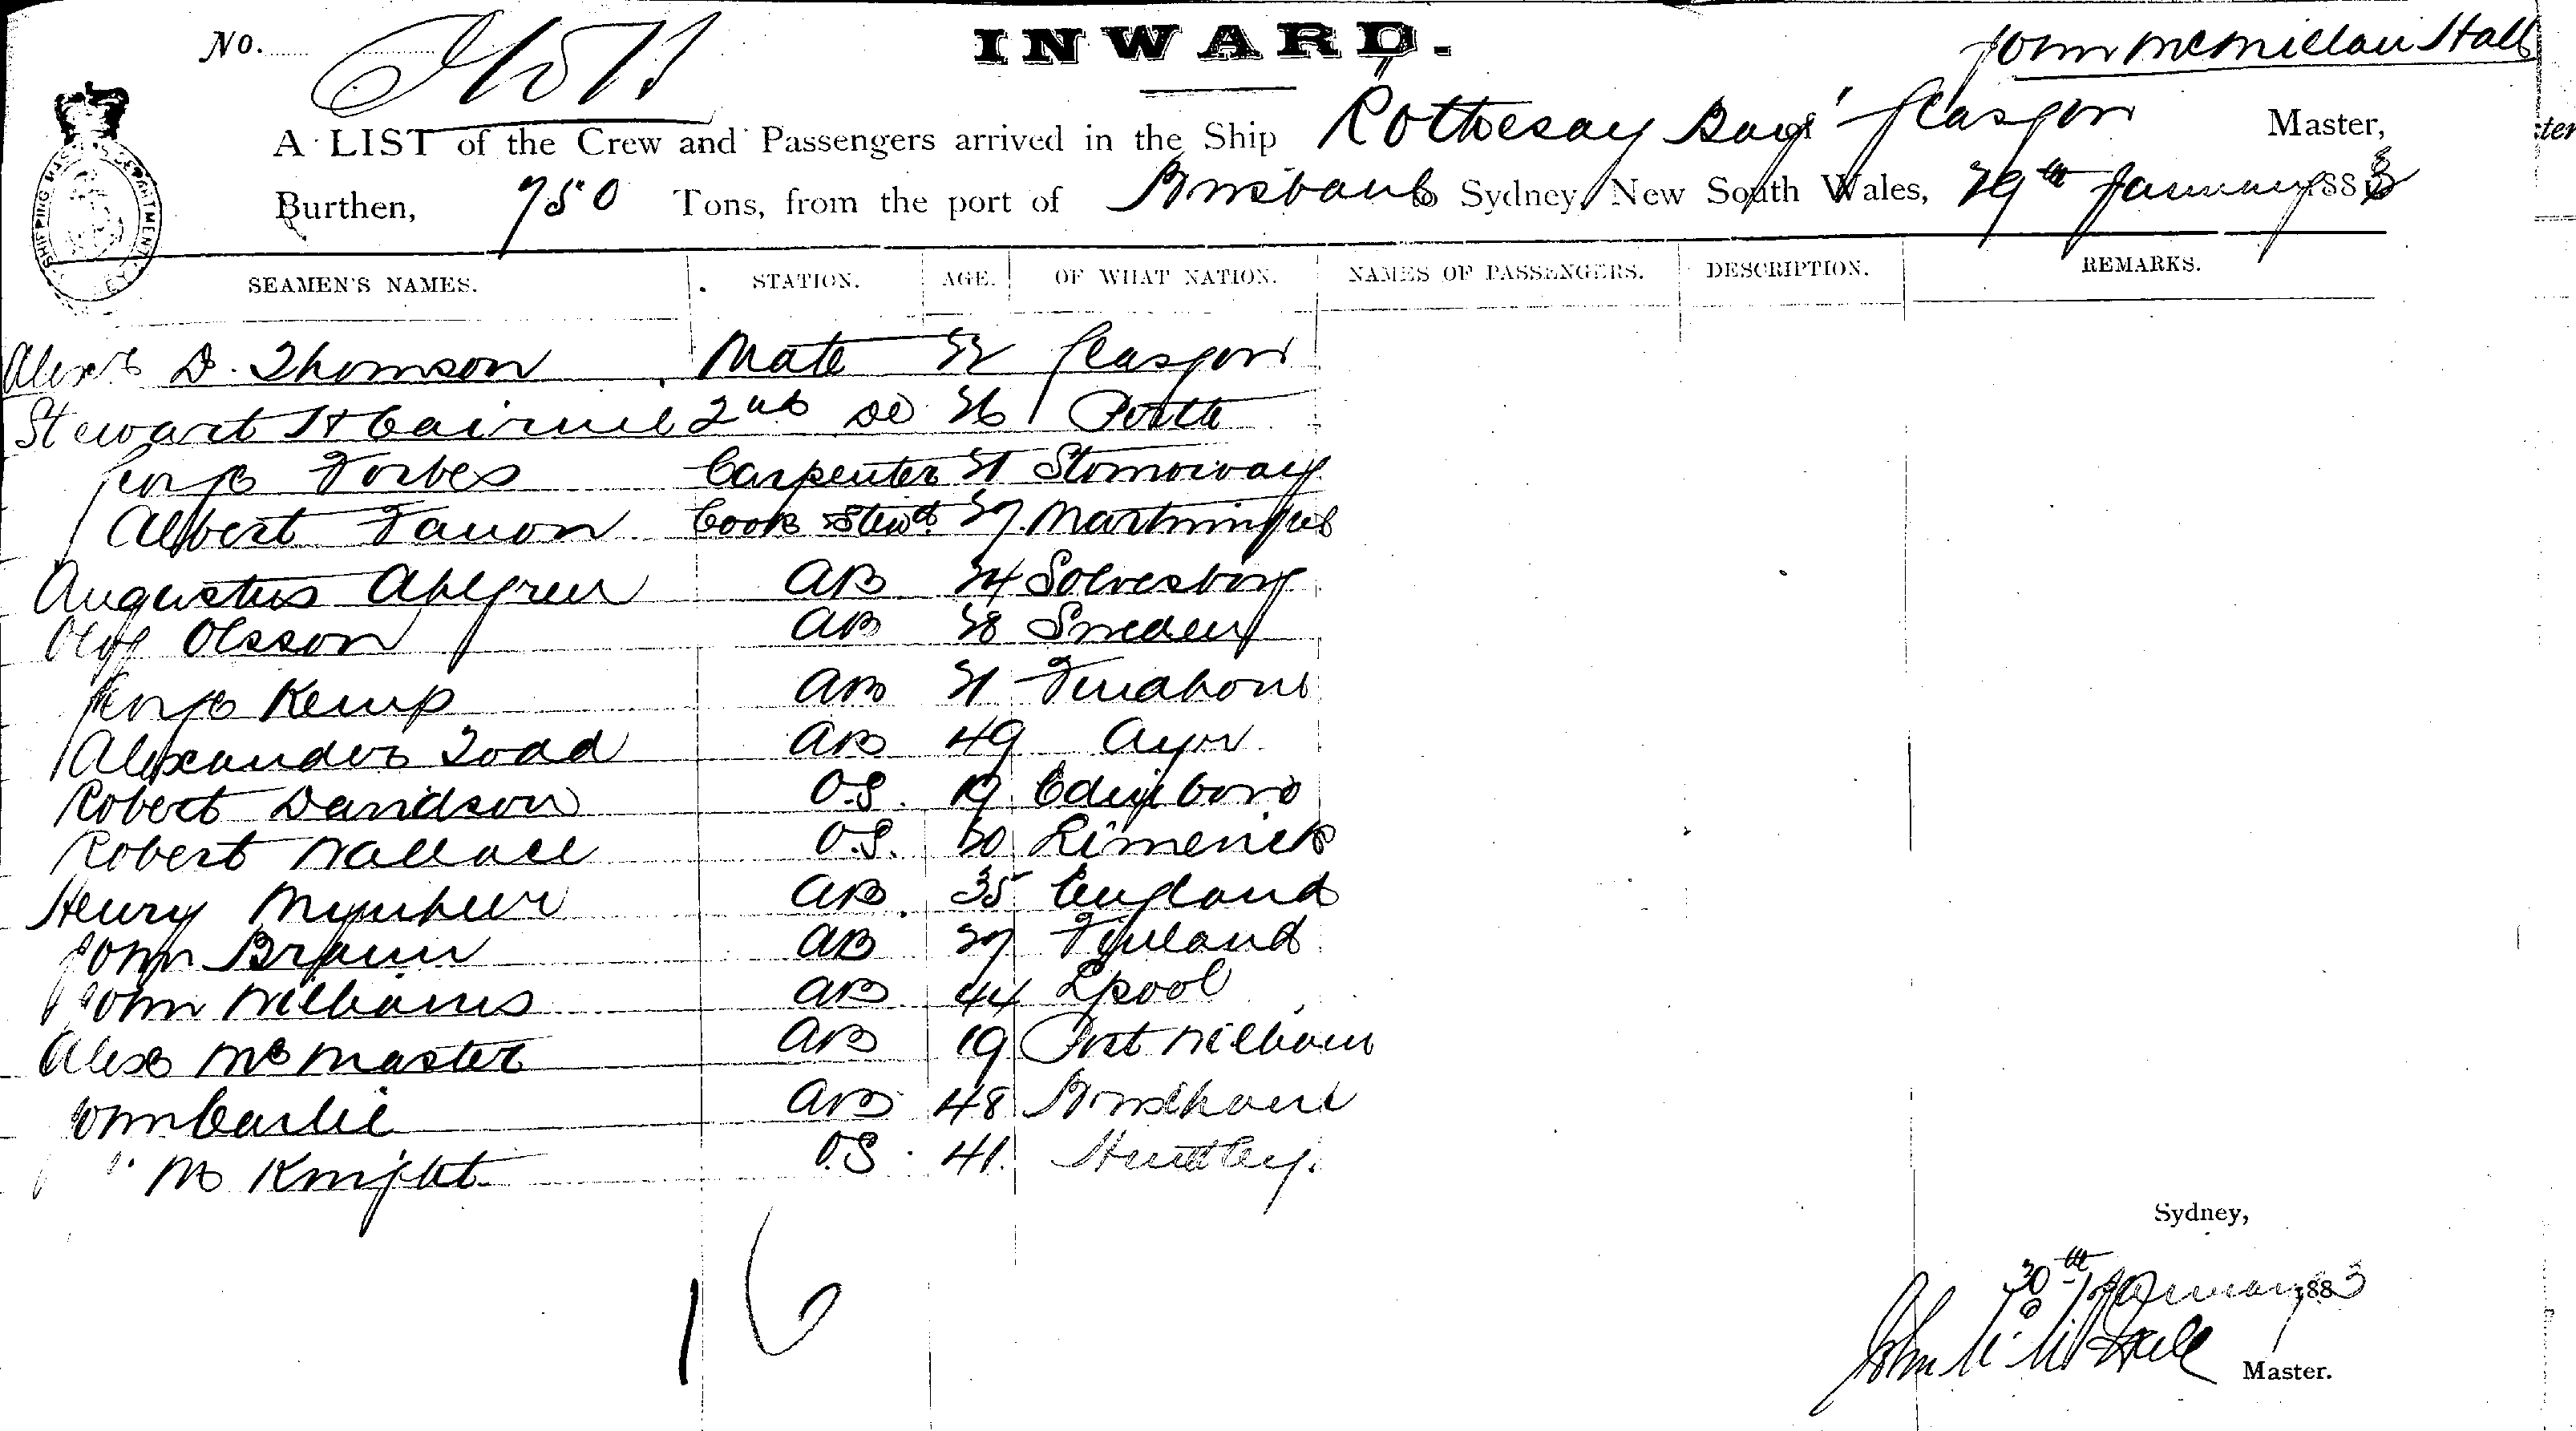 No.
INWARD.
John McMillan Hall
A LIST of the Crew and Passengers arrived in the Ship Rothesay Bay Glasgow Master,
Burthen, 750 Tons, from the port of Brisbane to Sydney, New South Wales, 29th January 1883
SEAMEN'S NAMES. STATION. AGE. OF WHAT NATION. NAMES OF PASSENGERS. DESCRIPTION. REMARKS.
Alexr D. Thomson Mate Glasgow
Stewart H 2nd Do Perth
George Forbes Carpenter Stornoway
Albert Cook & Stewd Martinique
Augustus Ahlgren AB 24 Solvesborg
Olof Olsson AB Sweden
George Kemp AB
Alexander Todd AB 49 Ayr
Robert Davidson O.S. 19 Edinboro
Robert Wallace O.S. 20 Limerick
Henry AB 35 England
John Braun AB Finland
John Williams AB 44 Lpool
Alex McMaster AB 19 Fort William
John AB 48
" Mc Knight O.S. 41. Huntley.
16
Sydney,
30th January 1883
John McM Hall
Master.